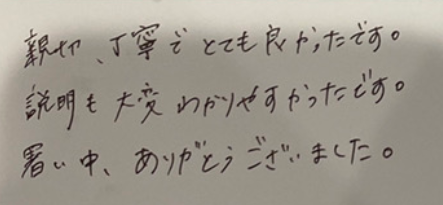 親切、丁寧でとても良かったです。
説明も大変わかりやすかったです。
暑い中、ありがとうございました。